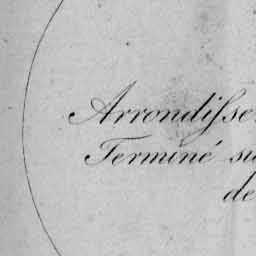 Arrondiſse
Terminé su
de